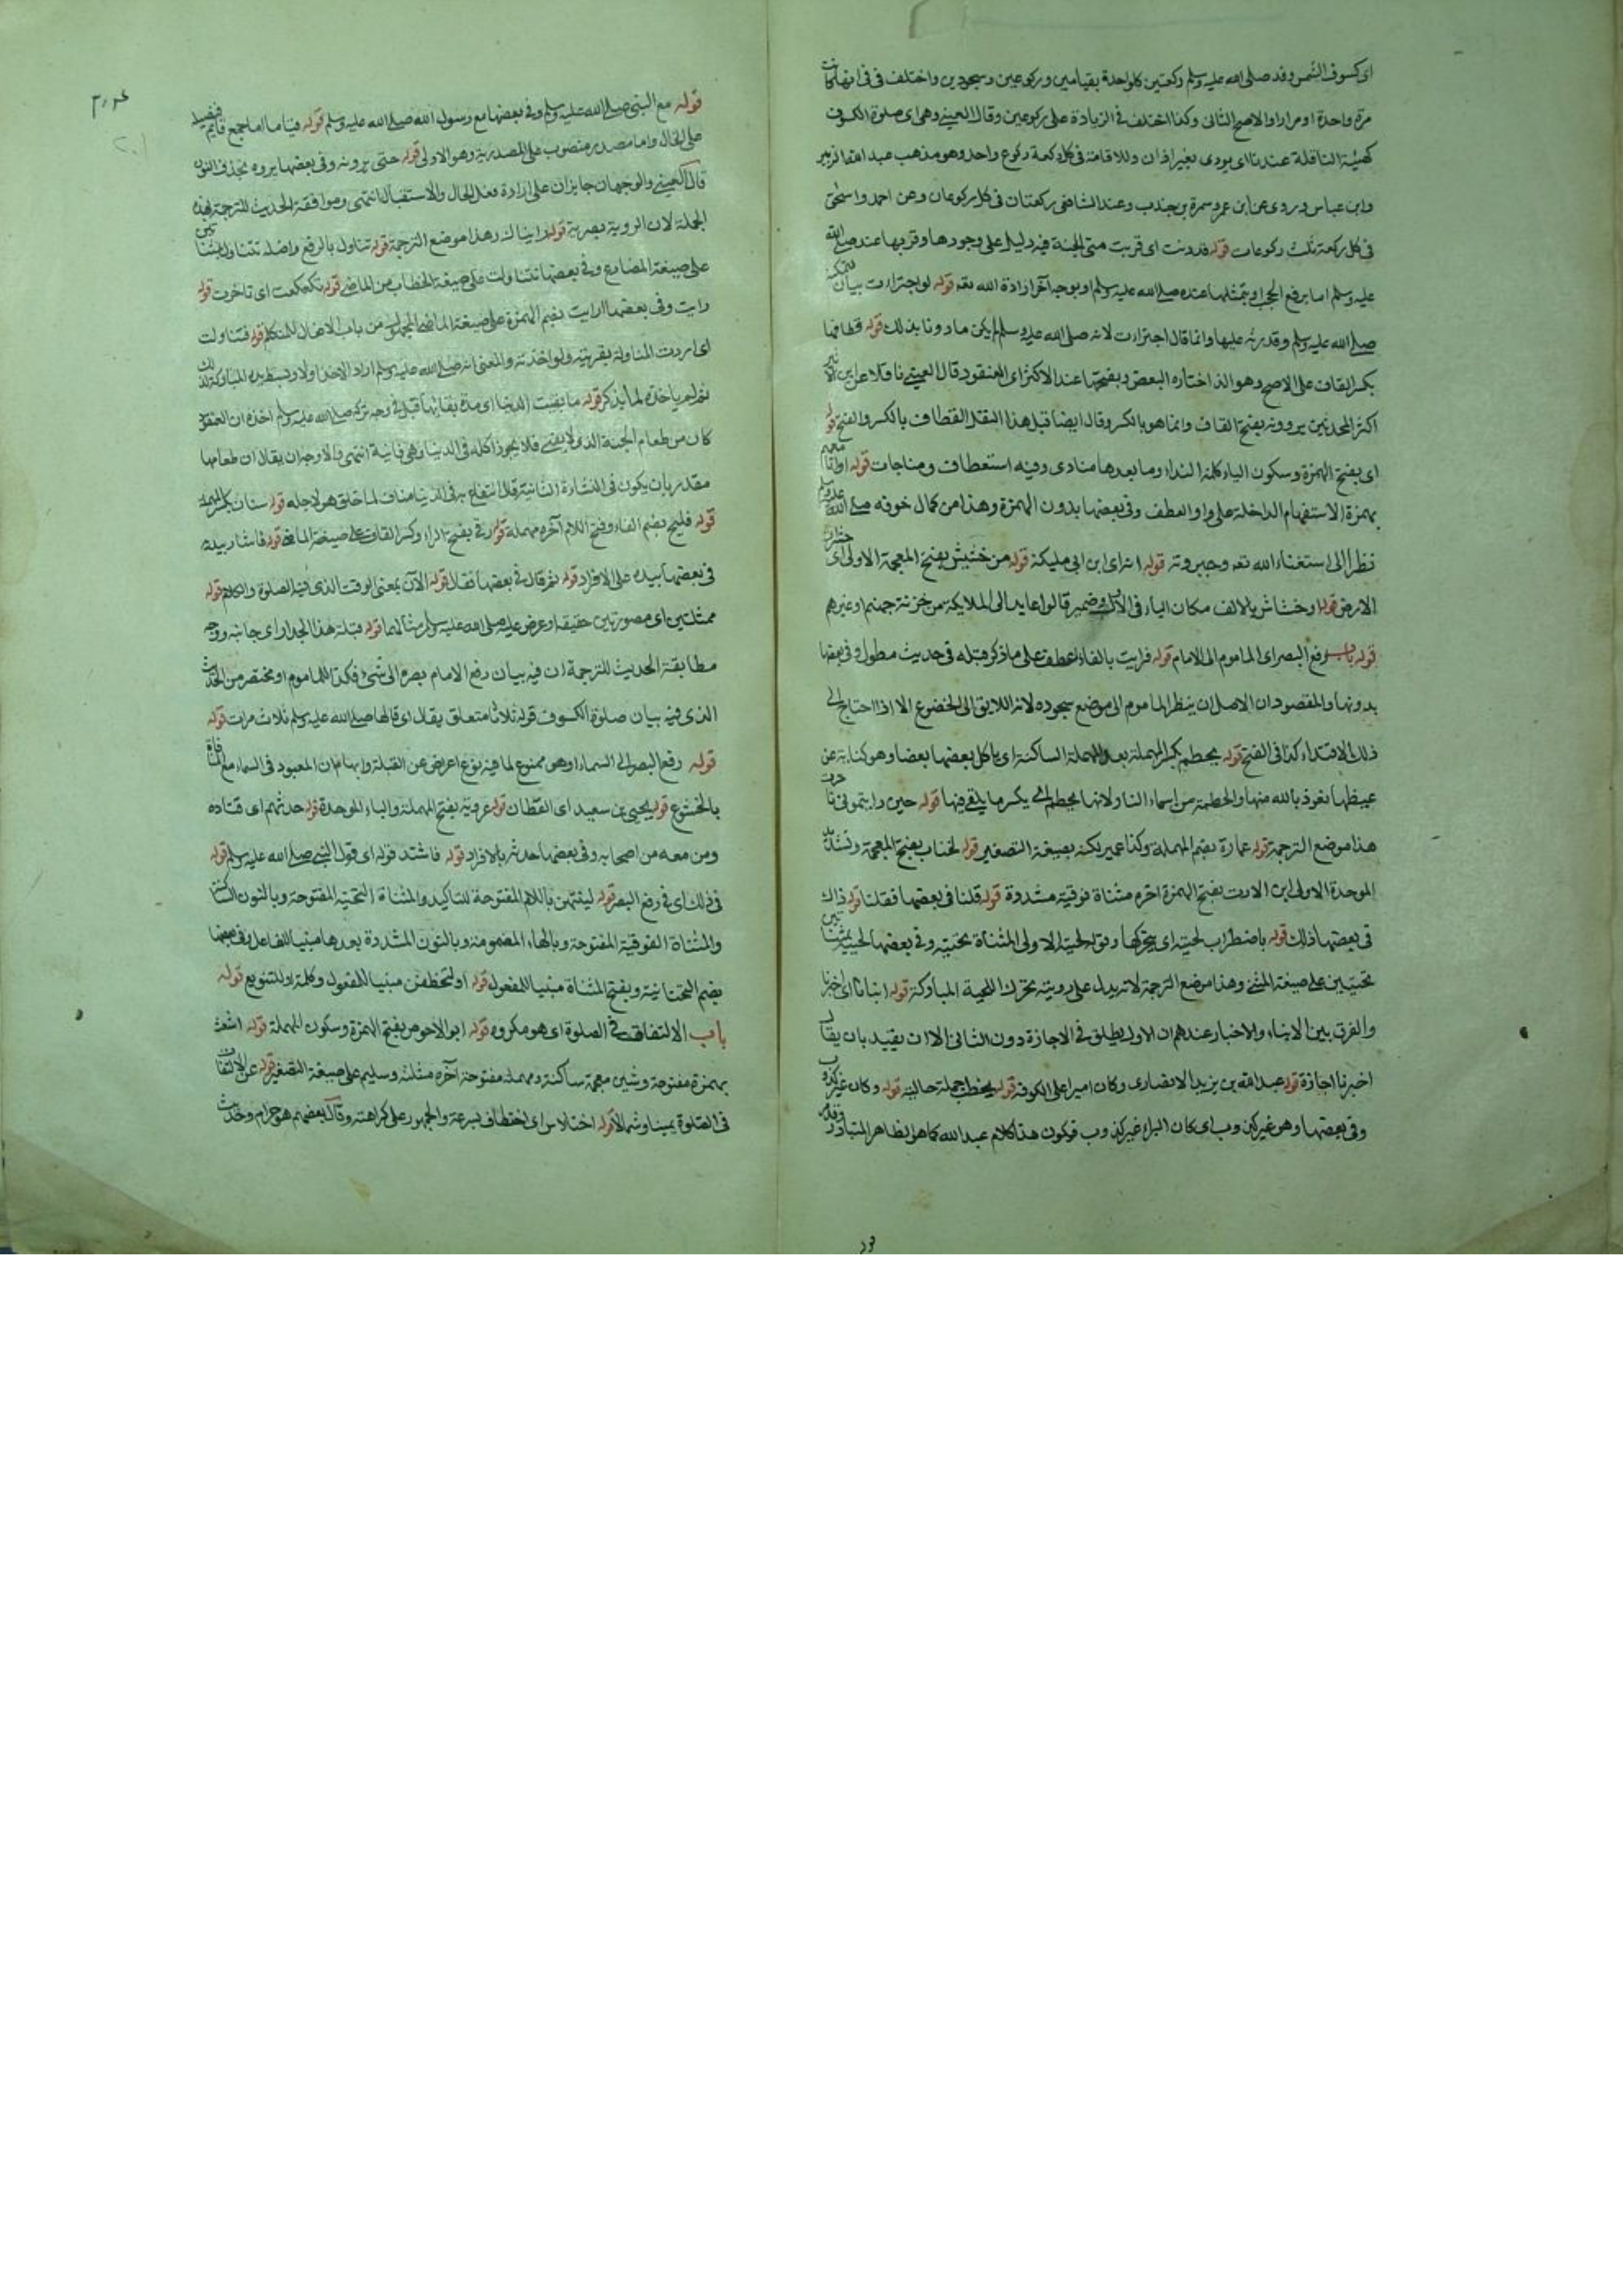 اى كسوف الشمس وقد صلى الله عليه وسلم ركعتين كل واحدة بقيامين وركوعين وسجودين واختلف فى انها كانت
مرة واحدة او مرارا والاصح الثانى وكذا اختلف فى الزيادة على ركوعين وقال العينى وهى اى صلوة الكسوف
كهيئة النافلة عندنا اى يودى بغير اذان ولا اقامة فى كل ركعة ركوع واحد وهو مذهب عبد الله الزبير
وابن عباس وروى عن ابن عمر وسمرة بن جندب وعند الشافعى ركعتان فى كل ركوعان وعن احمد واسحق
فى كل ركعة ثلث ركوعات قوله قد دنت اى قربت منى الجنة فيه دليل على وجودها وقربها عنده صلى الله
عليه وسلم اما برفع الحجب او بتمثلها عنده صلى الله عليه وسلم او بوجه آخر ارادة الله تعه قوله لو اجترات بيان لتمكنه
صلى الله عليه وسلم وقدرته عليها وانما قال اجترات لانه صلى الله عليه وسلم لم يكن ماذونا بذلك قوله قطافها
بكسر القاف على الاصح وهو الذ اختاره البعض وبفتحها عند الاكثر اى العنقود قال العينى ناقلا عن ابن الاثير
اكثر المحدثين يروونه بفتح القاف وانما هو بالكسر وقال ايضا قبل هذا النقل القطاف بالكسر والفتح قوله
اى بفتح الهمزة وسكون الياء كلمة النداء وما بعدها منادى وفيه استعطاف ومناجات قوله اوانا معهم
بهمزة الاستفهام الداخلة على واو العطف وفى بعضها بدون الهمزة وهذا من كمال خوفه صلى الله عليه وسلم
نظرا الى استغناء الله تعه وجبروته قوله انه اى ابن ابى مليكة قوله من خشيش بفتح المعجمة الاولى اى حشرات
الارض قوله او خشاش بالالف مكان الياء فى الاول وضمير قالوا عايد الى الملايكة من خزنة جهنم او غيرهم
قوله باب رفع البصر اى الماموم الى الامام قوله فرايت بالفاء للعطف على ما ذكر قبله فى حديث مطول وفى بعضها
بدونها والمقصود ان الاصل ان ينظر الماموم الى موضع سجوده لانه اللايق الى الخضوع الا اذا احتاج الى
ذلك الاقتداء كذا فى الفتح قوله يحطم بكسر المهملة بعد المهملة الساكنة اى ياكل بعضها بعضا وهو كناية عن
غيظها نعوذ بالله منها والحطمة من اسماء النار لانها يحطم اى يكسر ما يلقى فيها قوله حين رايتمونى تاخرت
هذا موضع الترجمة قوله عمارة بضم المهملة وكذا عمير لكنه بصيغة التصغير قوله لخباب بفتح المعجمة وتشديد
الموحدة الاولى ابن الارت بفتح الهمزة اخره مثناة فوقية مشددة قوله قلنا فى بعضها فقلنا قوله ذاك
فى بعضها ذلك قوله باضطراب لحيته اى يتحركها وقوله لحيته الاولى المثناة تحتية وفى بعضها لحييه بمثناتين
تحتيتين على صيغة المثنى وهذا موضع الترجمة لانه يدل على رويته تحرك اللحية المباركة قوله انبانا اى اخبرنا
والفرق بين الانباء والاخبار عندهم ان الاول يطلق فى الاجازة دون الثانى الا ان يقيد بان يقال
اخبرنا اجازة قوله عبد الله بن يزيد الانصارى وكان اميرا على الكوفة قوله يخطب جملة حالية قوله وكان غير كذوب
وفى بعضها وهو غير كذوب اى كان البراء غير كذوب فيكون هذا كلام عبد الله كما هو الظاهر المتبادر وفيه
قوله مع النبى صلى الله عليه وسلم وفى بعضها مع رسول الله صلى الله عليه وسلم قوله قياما اما جمع قايم فنصبه
على الحال واما مصدر منصوب على المصدرية وهو الاولى قوله حتى يرونه وفى بعضها يروه بحذف النون
قال العينى والوجهان جايزان على ارادة فعل الحال والاستقبال انتهى وموافقة الحديث للترجمة بهذه
الجملة لان الروية بصرية قوله رايناك وهذا موضع الترجمة قوله تناول بالرفع واصله تتناول بتائين
على صيغة المضارع وفى بعضها تناولت على صيغة الخطاب من الماضى قوله تكعكعت اى تاخرت قوله
رايت وفى بعضها اريت بضم الهمزة على صيغة الماضى المجهول من باب الافعال للمتكلم قوله فتناولت
اى اردت المناولة بقرينة ولو اخذته والمعنى انه صلى الله عليه وسلم اراد الاخذ اولا وبسط يده المباركة لذلك
ثم لم ياخذه لما يذكر قوله ما بقيت الدنيا اى مدة بقايها قيل فى وجه تركه صلى الله عليه وسلم اخذه ان العنقود
كان من طعام الجنة الذى لا يفنى فلا يجوز اكله فى الدنيا وهى فانية انتهى والاوجه ان يقال ان طعامها
مقدر بان يكون فى النشاءة الثانية فالانتفاع به فى الدنيا مناف لما خلق هو لاجله قوله سنان بكسر المهملة
قوله فليح بضم الفاء وفتح اللام آخره مهملة قوله رقى بفتح الراء وكسر القاف على صيغة الماضى قوله فاشار بيديه
فى بعضها بيده على الافراد قوله ثم قال فى بعضها فقال قوله الآن بمعنى الوقت الذى فيه الصلوة والكلام قوله
ممثلتين اى مصورتين حقيقة او عرض عليه صلى الله عليه وسلم مثالهما قوله قبلة هذا الجدار اى جانبه ووجه
مطابقة الحديث للترجمة ان فيه بيان رفع الامام بصره الى شئ فكذا للماموم او مختصر من الحديث
الذى فيه بيان صلوة الكسوف قوله ثلاثا متعلق بقال اى قالها صلى الله عليه وسلم ثلاث مرات قوله
قوله رفع البصر الى السماء اى وهو ممنوع لما فيه نوع اعراض عن القبلة وايهام ان المعبود فى السماء مع المنافاة
بالخشوع قوله يحيى بن سعيد اى القطان قوله عروبة بفتح المهملة والباء الموحدة قوله حدثهم اى قتاده
ومن معه من اصحابه وفى بعضها حدثه بالافراد قوله فاشتد قوله اى قول النبى صلى الله عليه وسلم قوله
فى ذلك اى فى رفع البصر قوله لينتهن باللام المفتوحة للتاكيد والمثناة التحتية المفتوحة وبالنون الساكنة
والمثناة الفوقية المفتوحة وبالهاء المضمومة وبالنون المشددة بعدها مبنيا للفاعل وفى بعضها
بضم التحتانية وبفتح المثناة مبنيا للمفعول قوله او لتخطفن مبنيا للمفعول وكلمة او للتنويع قوله
باب الالتفات فى الصلوة اى هو مكروه قوله ابو الاحوص بفتح الهمزة وسكون المهملة قوله اشعث
بهمزة مفتوحة وشين معجمة ساكنة ومهملة مفتوحة آخره مثلثة وسليم على صيغة التصغير قوله عن الالتفات
فى الصلوة يمينا وشمالا قوله اختلاس اى اختطاف بسرعة والجمهور على كراهته وقال بعضهم هو حرام وحديث